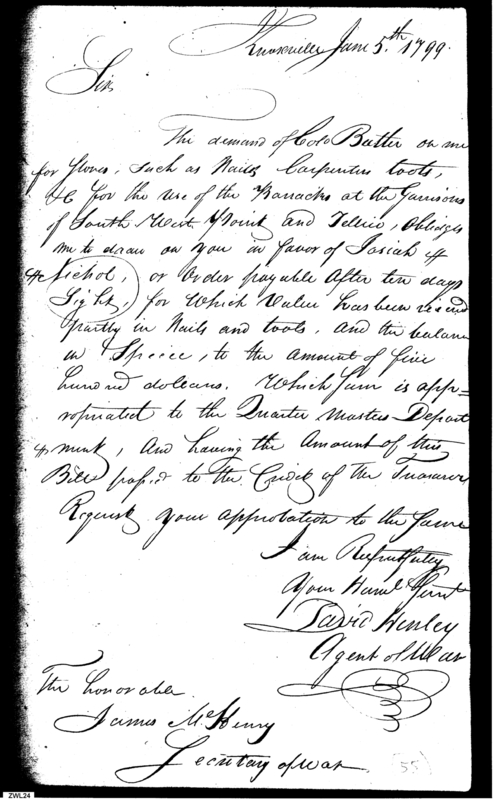 Knoxville Jany 5.th 1799.
Sir
The demand of Colo Butler on me
for stores, such as Nails Carpenters tools,
&c for the use of the Barracks at the Garrisons
of South West Point and Tellico, Obliges
me to draw on you in favor of Josiah
Nichol, or Order payable After ten days
Sight, for Which Value has been receivd
partly in Nails and tools, And the balance
in Speciee, to the amount of five
hundred dolears. Which Sum is app=
ropriated to the Quarter Masters Depart
ment, And having the Amount of this
Bill passd to the Credit of the Treasurer
Request your approbation to the Same
I am Respectfuley
Your Humle Servt
David Henley
Agent of War
The honorable
James McHenry
Secretary of War.
55
ZWL24